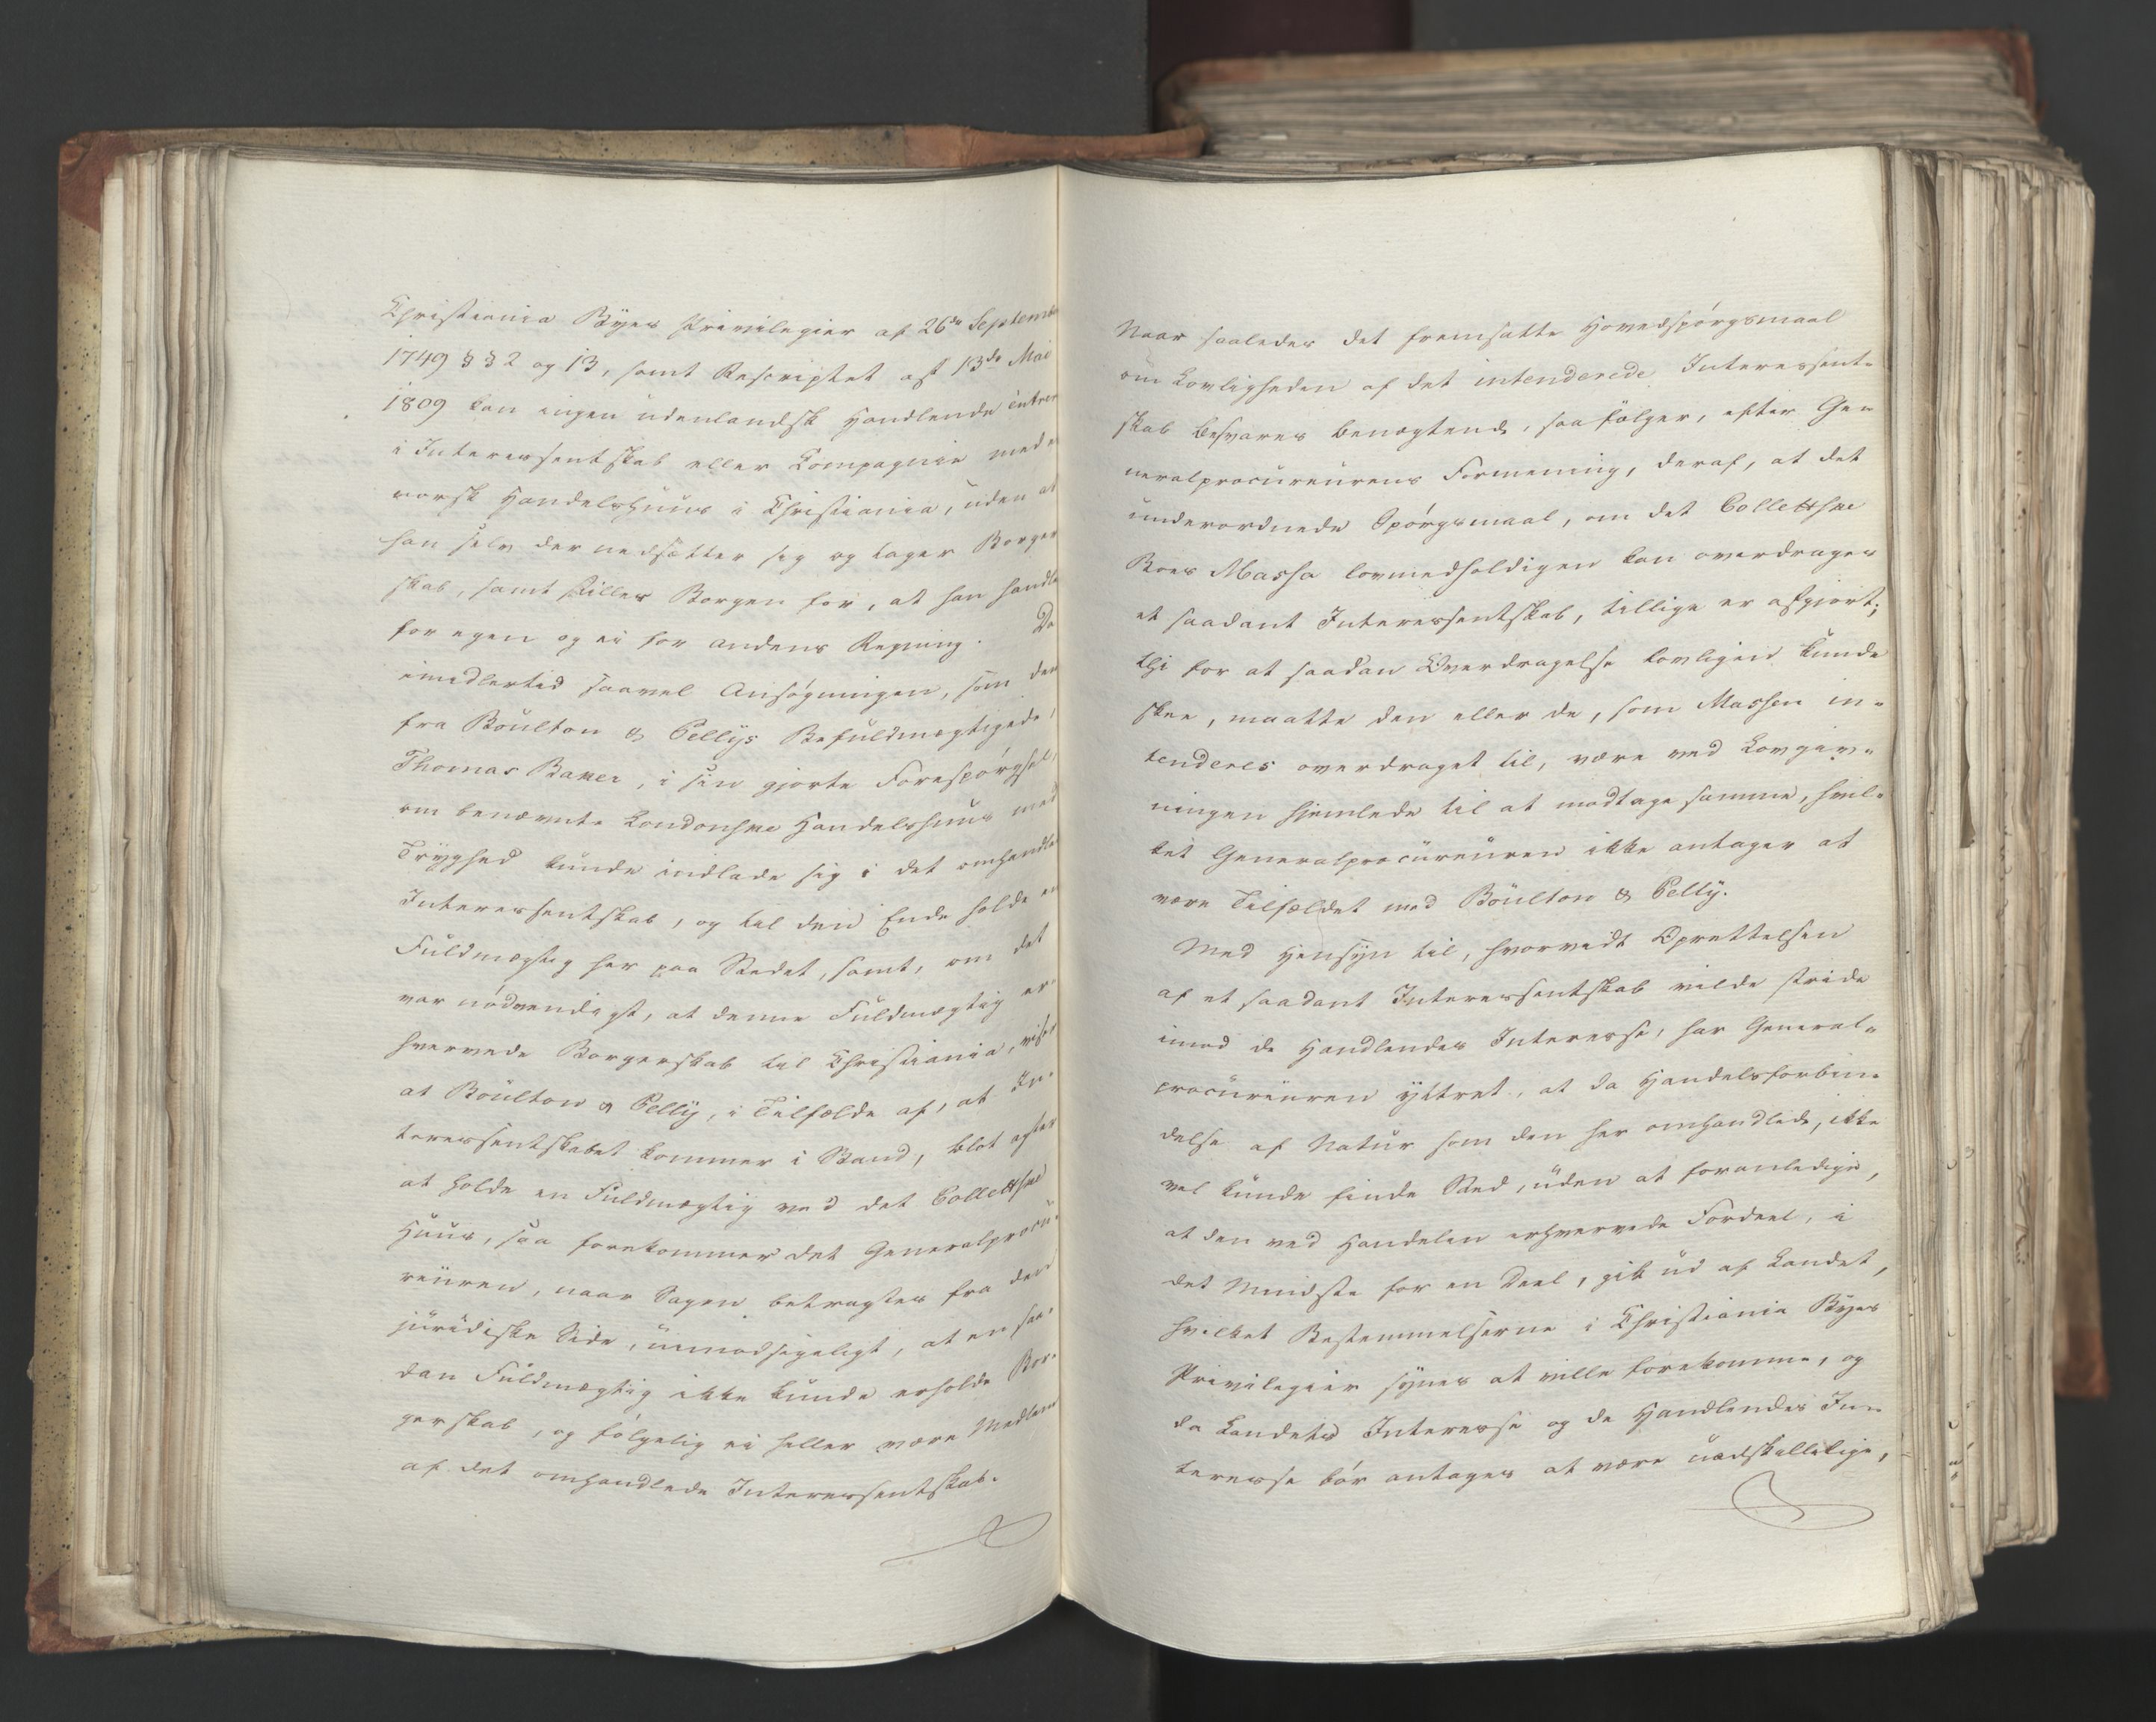 Christiania Byes Privilegier af 26de Septembe
1749 §§ 2 og 13, samt Rescriptet af 13de Mai
1809 kan ingen udenlandsk Handlende entrer
i Interessentskab eller Compagnie med e
norsk Handelshuus i Christiania, uden at
han selv der nedsætter sig og tager Borger
skab, samt stiller Borgen for, at han handle
for egen og ei for andens Regning. Da
imidlertid saavel Ansøgningen, som den
fra Boulton & Pellys Befuldmægtigede,
Thomas Baker, i sin gjorte Forespørgsel,
om benævnte Londonske Handelshuus med
Tryghed kunde indlade sig i det omhandle
Interessentskab, og til den Ende holde en
Fuldmægtig her paa Stedet, samt, om det
var nødvendigt, at denne Fuldmægtig er-
hvervede Borgerskab til Christiania, viser
at Boulton & Pelly, i Tilfælde af, at In-
teressentskabet kommer i Stand, blot agter
at holde en Fuldmægtig ved det Collettske
Huus, saa forekommer det Generalprocu-
reuren, naar Sagen betragtes fra den
juridiske Side, uimodsigeligt, at en saa-
dan Fuldmægtig ikke kunde erholde Bor-
gerskab, og følgelig ei heller være Medlem
af det omhandlede Interessentskab.
Naar saaledes det fremsatte Hovedspørgsmaal
om Lovligheden af det intenderede Interessent-
skab besvares benægtende, saa følger, efter Ge-
neralprocureurens Formening, deraf, at det
underordnede Spørgsmaal, om det Collettske
Boes Massa lovmedholdigen kan overdrages
et saadant Interessentskab, tillige er afgjort;
thi for at saadan Overdragelse lovligen kunde
skee, maatte den eller de, som Massen in-
tenderes overdraget til, være ved Lovgiv-
ningen hjemlede til at modtage samme, hvil-
ket Generalprocureuren ikke antager at
være Tilfældet med Boulton & Pelly.
Med Hensyn til, hvorvidt Oprettelsen
af et saadant Interessentskab vilde stride
imod de Handlendes Interesse, har General-
procureuren yttret, at da Handelsforbin-
delse af Natur som den her omhandlede, ikke
vel kunde finde Sted, uden at foranledige,
at den ved Handelen erhvervede Fordeel, i
det Mindste for en Deel, gik ud af Landet,
hvilket Bestemmelserne i Christiania Byes
Privilegier synes at ville forekomme, og
da Landets Interesse og de Handlendes In-
teresse bør antages at være uadskillelige,